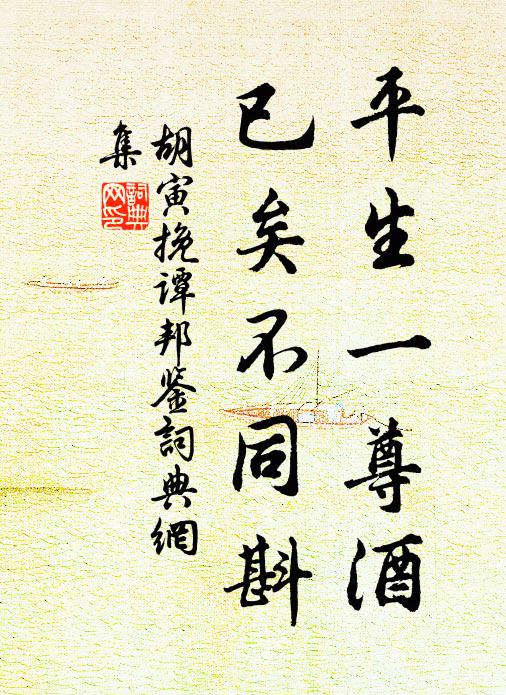 平生一尊酒
已矣不同斟
胡寅挽谭邦鉴詞典網
集
詞典
网印